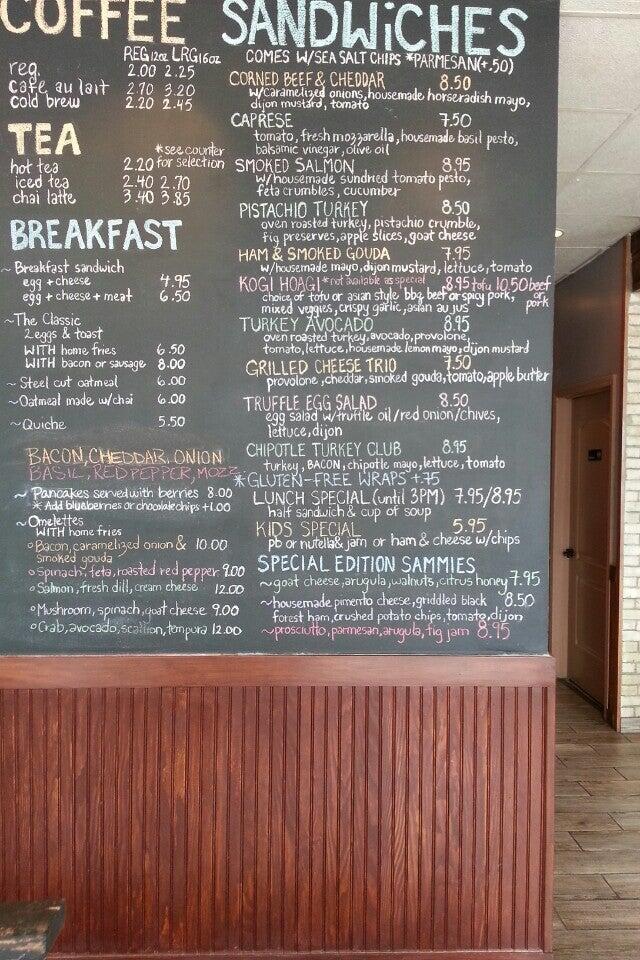 COFFEE
REG 12oz LRG 16oz
reg. 2.00 2.25
cafe au lait 2.70 3.20
cold brew 2.20 2.45
TEA
*see counter for selection
hot tea 2.20
iced tea 2.40 2.70
chai latte 3.40 3.85
BREAKFAST
~ Breakfast sandwich
egg + cheese 4.95
egg + cheese + meat 6.50
~The Classic
2 eggs & toast
WITH home fries 6.50
WITH bacon or sausage 8.00
~ Steel cut oatmeal 6.00
~Oatmeal made w/chai 6.00
~ Quiche 5.50
BACON, CHEDDAR, ONION
BASIL, RED PEPPER, MOZZ
~ Pancakes served with berries 8.00
* Add blueberries or chocolate chips +1.00
~Omelettes
WITH home fries
Bacon, caramelized onion & 10.00
smoked gouda
Spinach, feta, roasted red pepper 9.00
Salmon, fresh dill, cream cheese 12.00
Mushroom, spinach, goat cheese 9.00
Crab, avocado, scallion, tempura 12.00
SANDWiCHES
COMES W/SEA SALT CHIPS *PARMESAN(+.50)
CORNED BEEF & CHEDDAR 8.50
w/caramelized onions, housemade horseradish mayo,
dijon mustard, tomato
CAPRESE 7.50
tomato, fresh mozzarella, housemade basil pesto,
balsamic vinegar, olive oil
SMOKED SALMON 8.95
w/housemade sundried tomato pesto,
feta crumbles, cucumber
PISTACHIO TURKEY 8.50
oven roasted turkey, pistachio crumble,
fig preserves, apple slices, goat cheese
HAM & SMOKED GOUDA 7.95
w/housemade mayo, dijon mustard, lettuce, tomato
KOGI HOAGI *not available as special 8.95 tofu 10.50 beef or pork
choice of tofu or asian style bbq beef or spicy pork,
mixed veggies, crispy garlic, asian au jus
TURKEY AVOCADO 8.95
oven roasted turkey, avocado, provolone,
tomato, lettuce, housemade lemon mayo, dijon mustard
GRILLED CHEESE TRIO 7.50
provolone, cheddar, smoked gouda, tomato, apple butter
TRUFFLE EGG SALAD 8.50
egg salad w/truffle oil/red onion/chives,
lettuce, dijon
CHIPOTLE TURKEY CLUB 8.95
turkey, BACON, chipotle mayo, lettuce, tomato
*GLUTEN-FREE WRAPS +.75
LUNCH SPECIAL (until 3PM) 7.95/8.95
half sandwich & cup of soup
KIDS SPECIAL 5.95
pb or nutella & jam or ham & cheese w/chips
SPECIAL EDITION SAMMIES
~goat cheese, arugula, walnuts, citrus honey 7.95
~housemade pimento cheese, griddled black 8.50
forest ham, crushed potato chips, tomato, dijon
~prosciutto, parmesan, arugula, fig jam 8.95